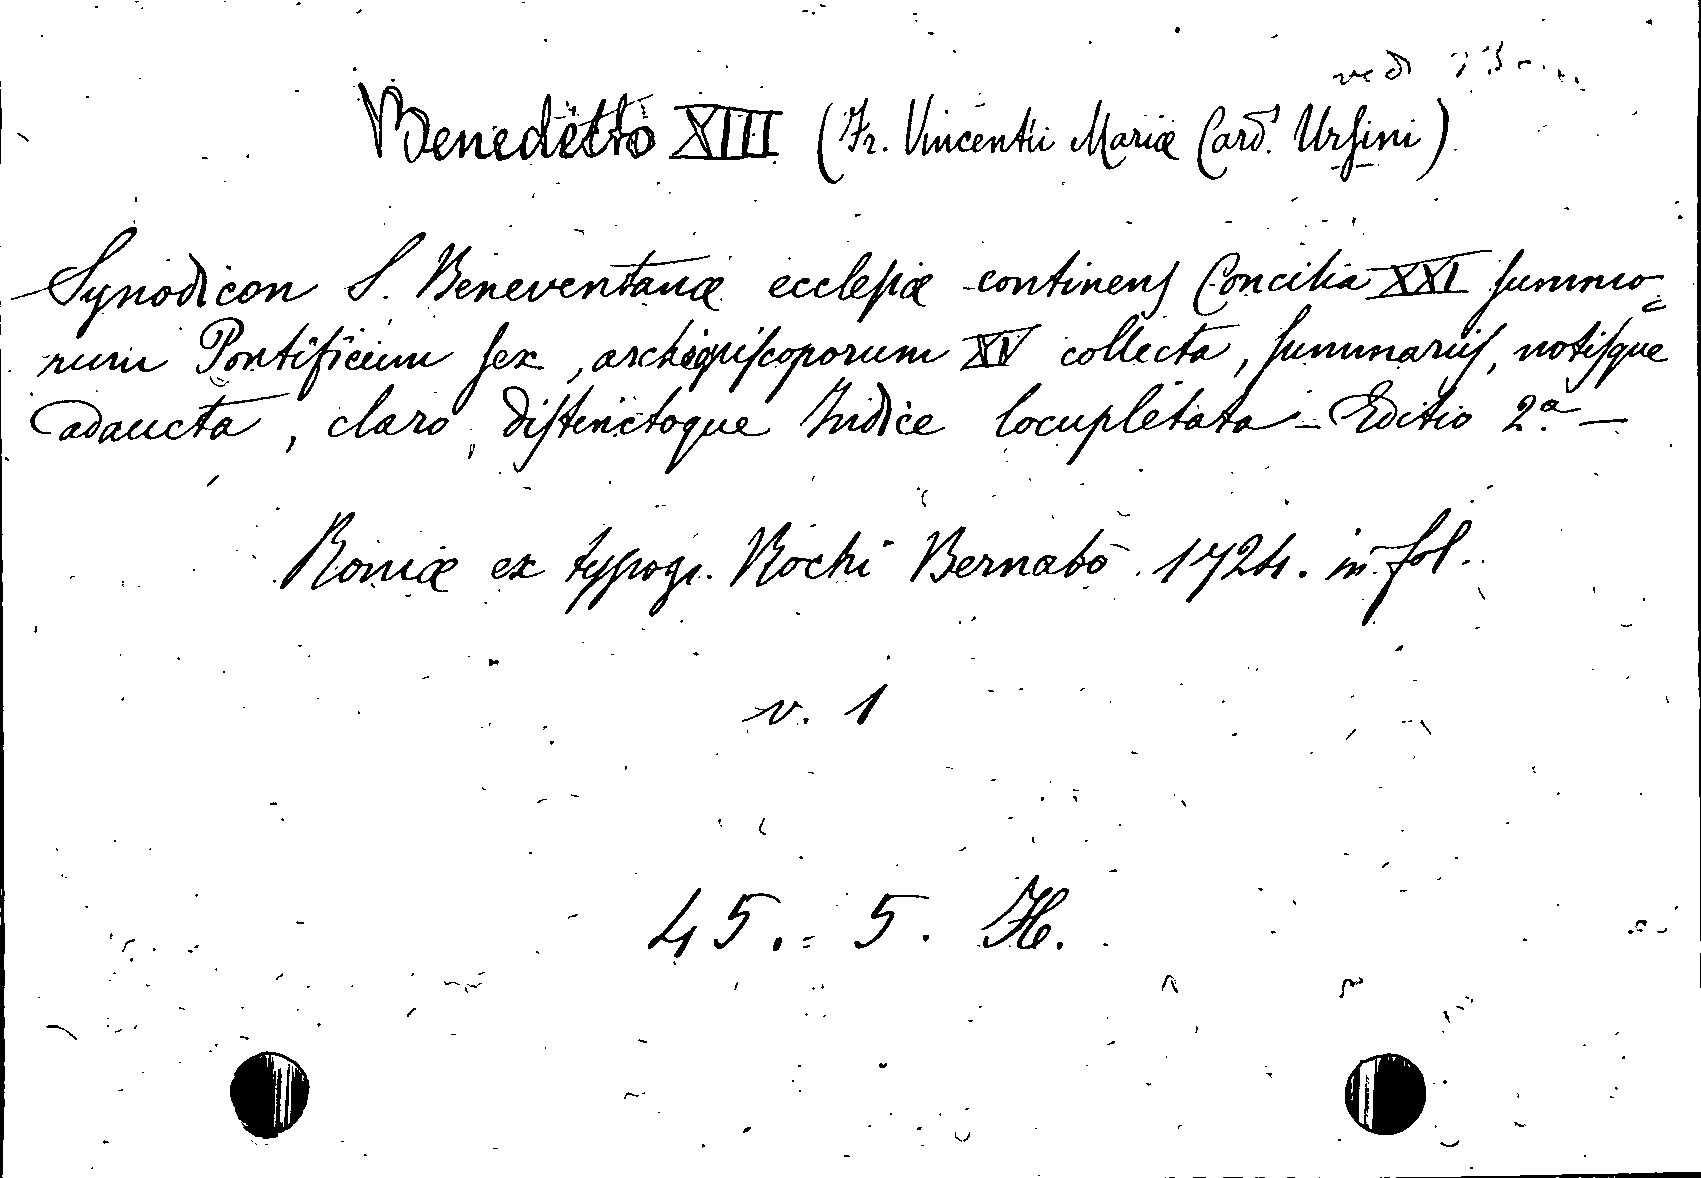 vedi
Benedetto XIII (Fr. Vincentii Mariæ Card. Ursini)
Synodicon S. Beneventanæ ecclesiæ continens Concilia XXI summo=
rum Pontificum sex, archiepiscoporum XV collecta, summariis, notisque
adaucta, claro, distinctoque Indice locupletata - Editio 2.ª -
Romæ ex typogr. Rochi Bernabò 1724. in fol.
v. 1
45. = 5. H.